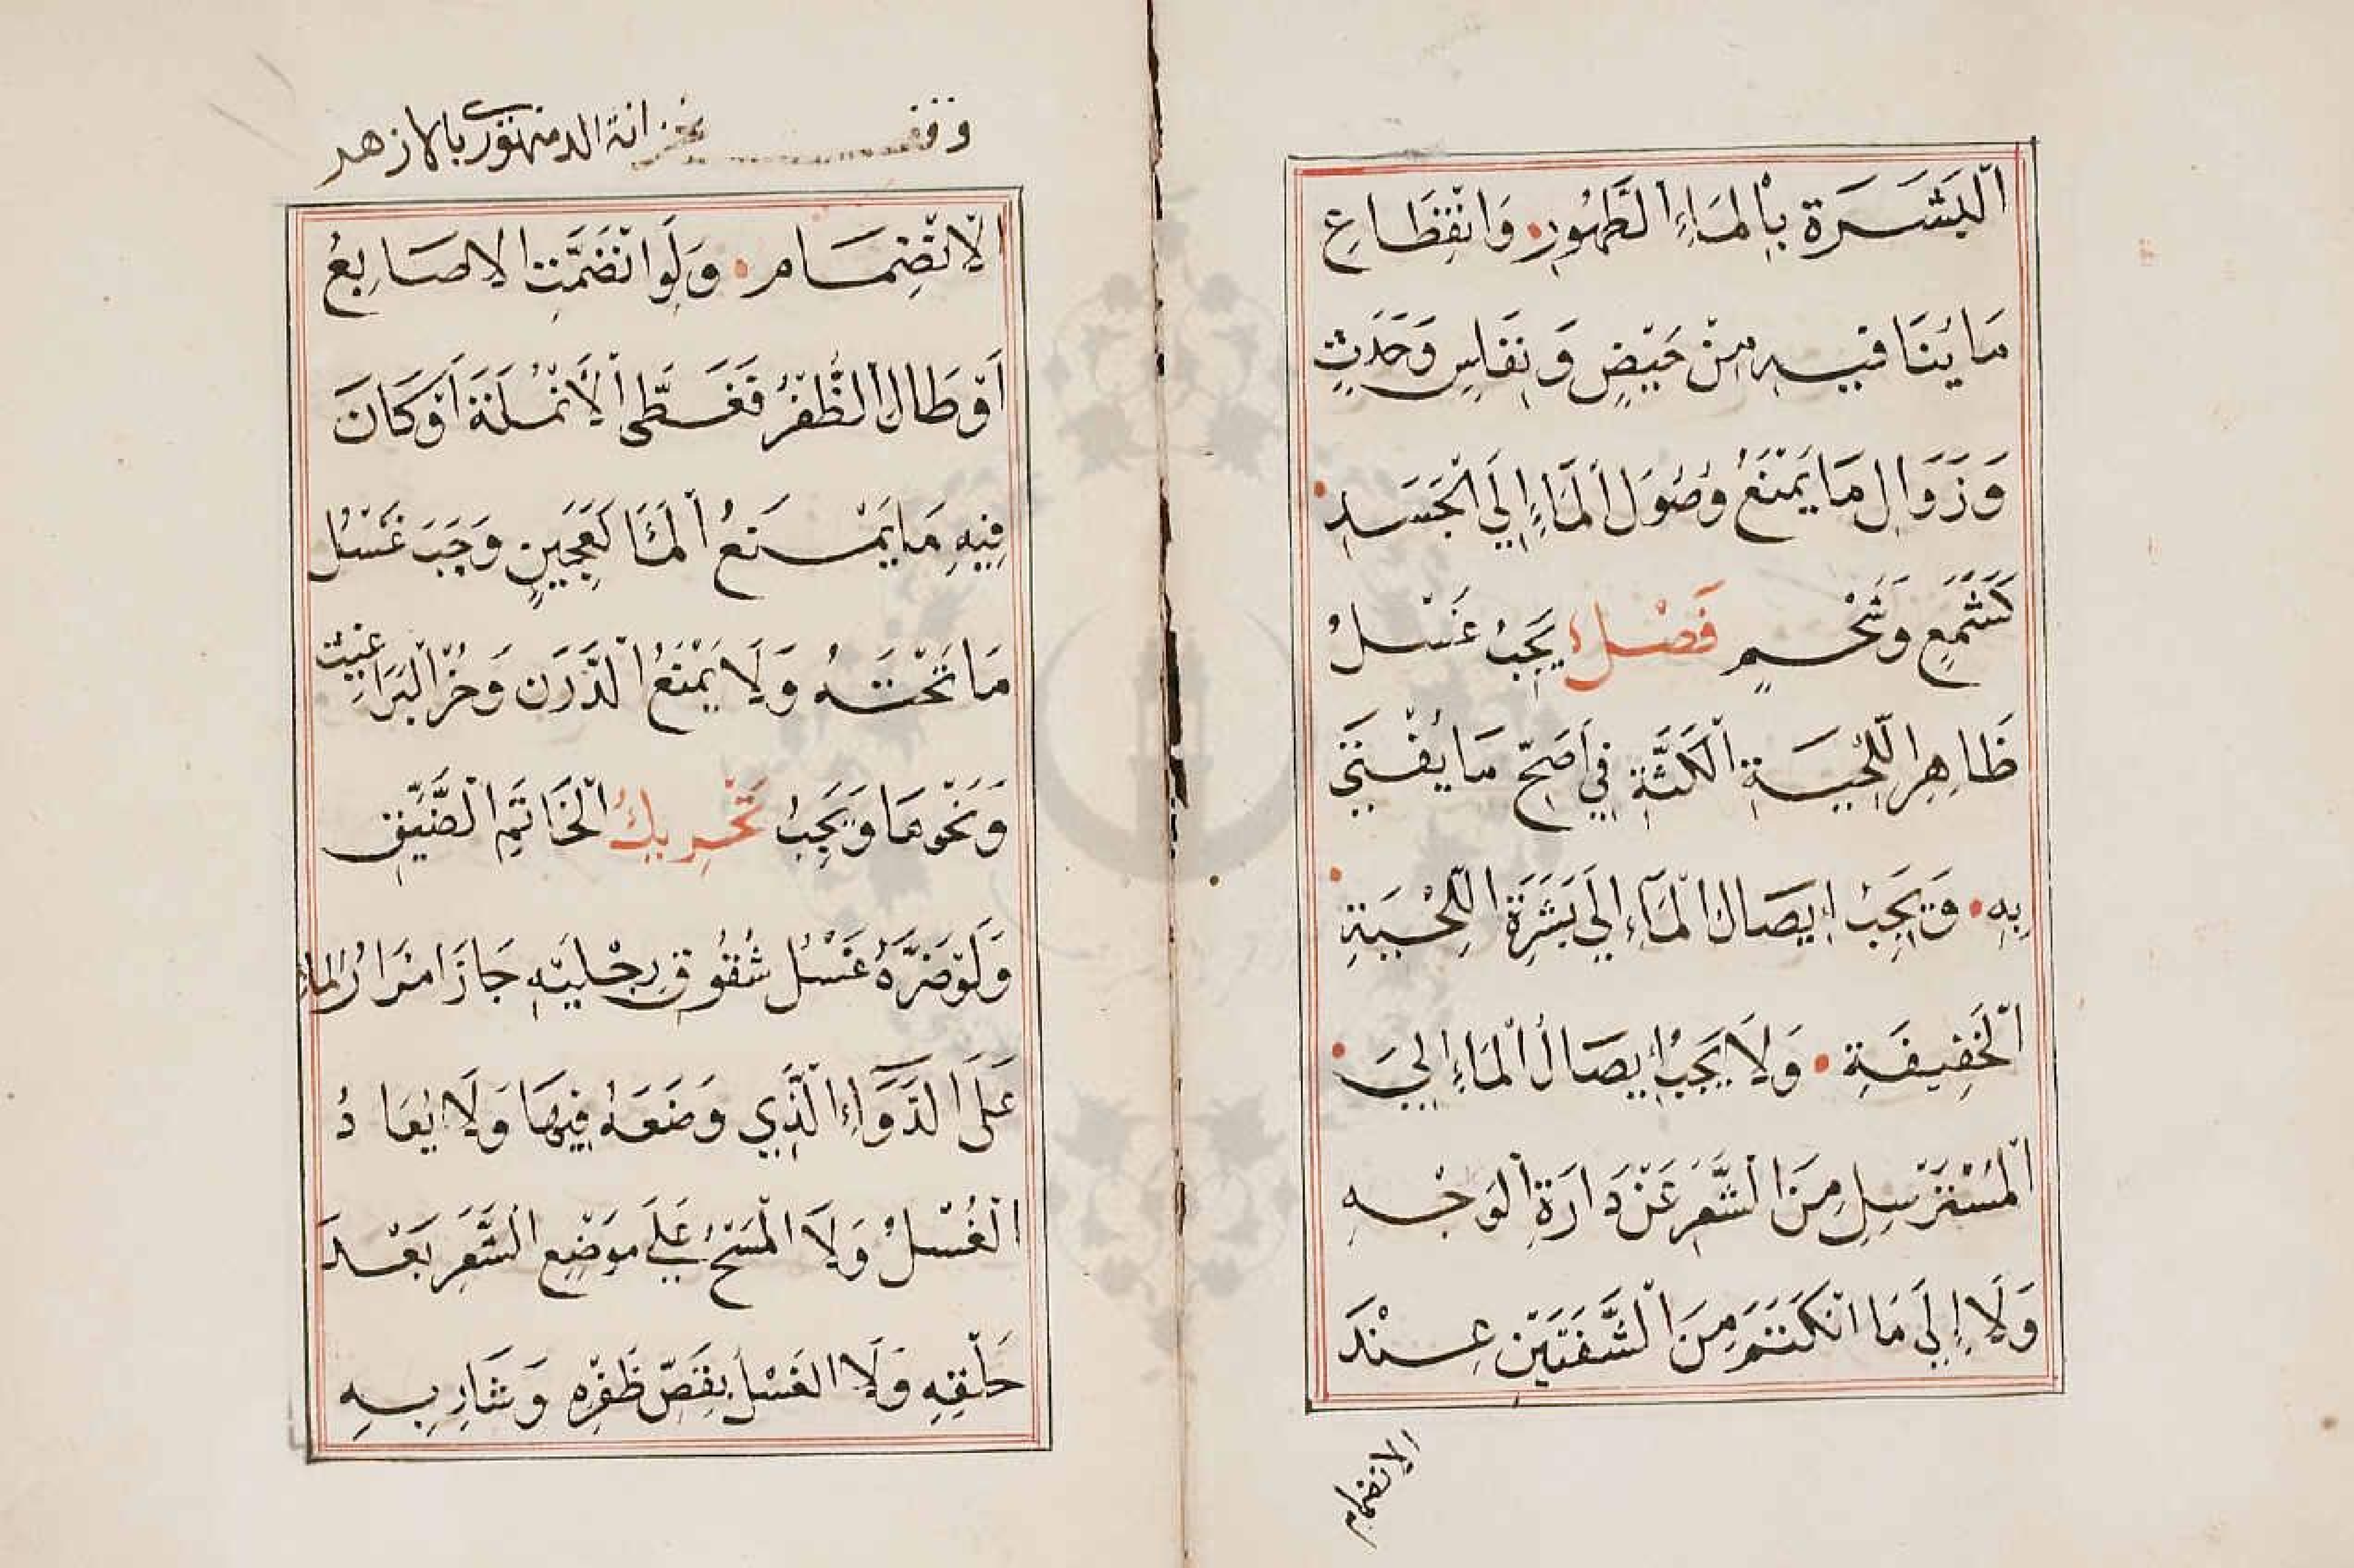 الْبَشَرَةِ بِالْمَاءِ الطَّهُورِ وَانْقِطَاعِ
مَا يُنَافِيهِ مِنْ حَيْضٍ وَنِفَاسٍ وَحَدَثٍ
وَزَوَالِ مَا يَمْنَعُ وُصُولَ الْمَاءِ إِلَي الْجَسَدِ
كَشَمْعٍ وَشَحْمٍ فَصْلٌ يَجِبُ غَسْلُ
ظَاهِرِ اللِّحْيَةِ الْكَثَّةِ فِي أَصَحِّ مَا يُفْتَي
بِهِ وَيَجِبُ إِيصَالُ الْمَاءِ إِلَي بَشَرَةِ اللِّحْيَةِ
الْخَفِيفَةِ وَلَا يَجِبُ إِيصَالُ الْمَاءِ إِلَي
الْمُسْتَرْسِلِ مِنَ الشَّعْرِ عَنْ دَارَةِ الْوَجْهِ
وَلَا إِلَي مَا انْكَتَمَ مِنَ الشَّفَتَيْنِ عِنْدَ
الانضمام
وقف بخزانة الدمنهوري بالازهر
الْاِنْضِمَامِ وَلَوِ انْضَمَّتِ الْاَصَابِعُ
أَوْ طَالَ الظُّفْرُ فَغَطَّى الْأَنْمُلَةَ أَوْ كَانَ
فِيهِ مَا يَمْنَعُ الْمَاءَ كَعَجِينٍ وَجَبَ غَسْلُ
مَا تَحْتَهُ وَلَا يَمْنَعُ الْدَّرَنُ وَخُرْءُ الْبَرَاغِيثِ
وَنَحْوِهَا وَيَجِبُ تَحْرِيكُ الْخَاتَمِ الضَّيِّقِ
وَلَوْ ضَرَّهُ غَسْلُ شُقُوقِ رِجْلَيْهِ جَازَ امْرَارُ الْمَاءِ
عَلَى الدَّوَاءِ الَّذِي وَضَعَهُ فِيهَا وَلَا يُعَادُ
الْغُسْلُ وَلَا الْمَسْحُ عَلَي مَوْضِعِ الشَّعْرِ بَعْدَ
حَلْقِهِ وَلَا الْغَسْلُ بِقَصِّ ظُفْرِهِ وَشَارِبِهِ